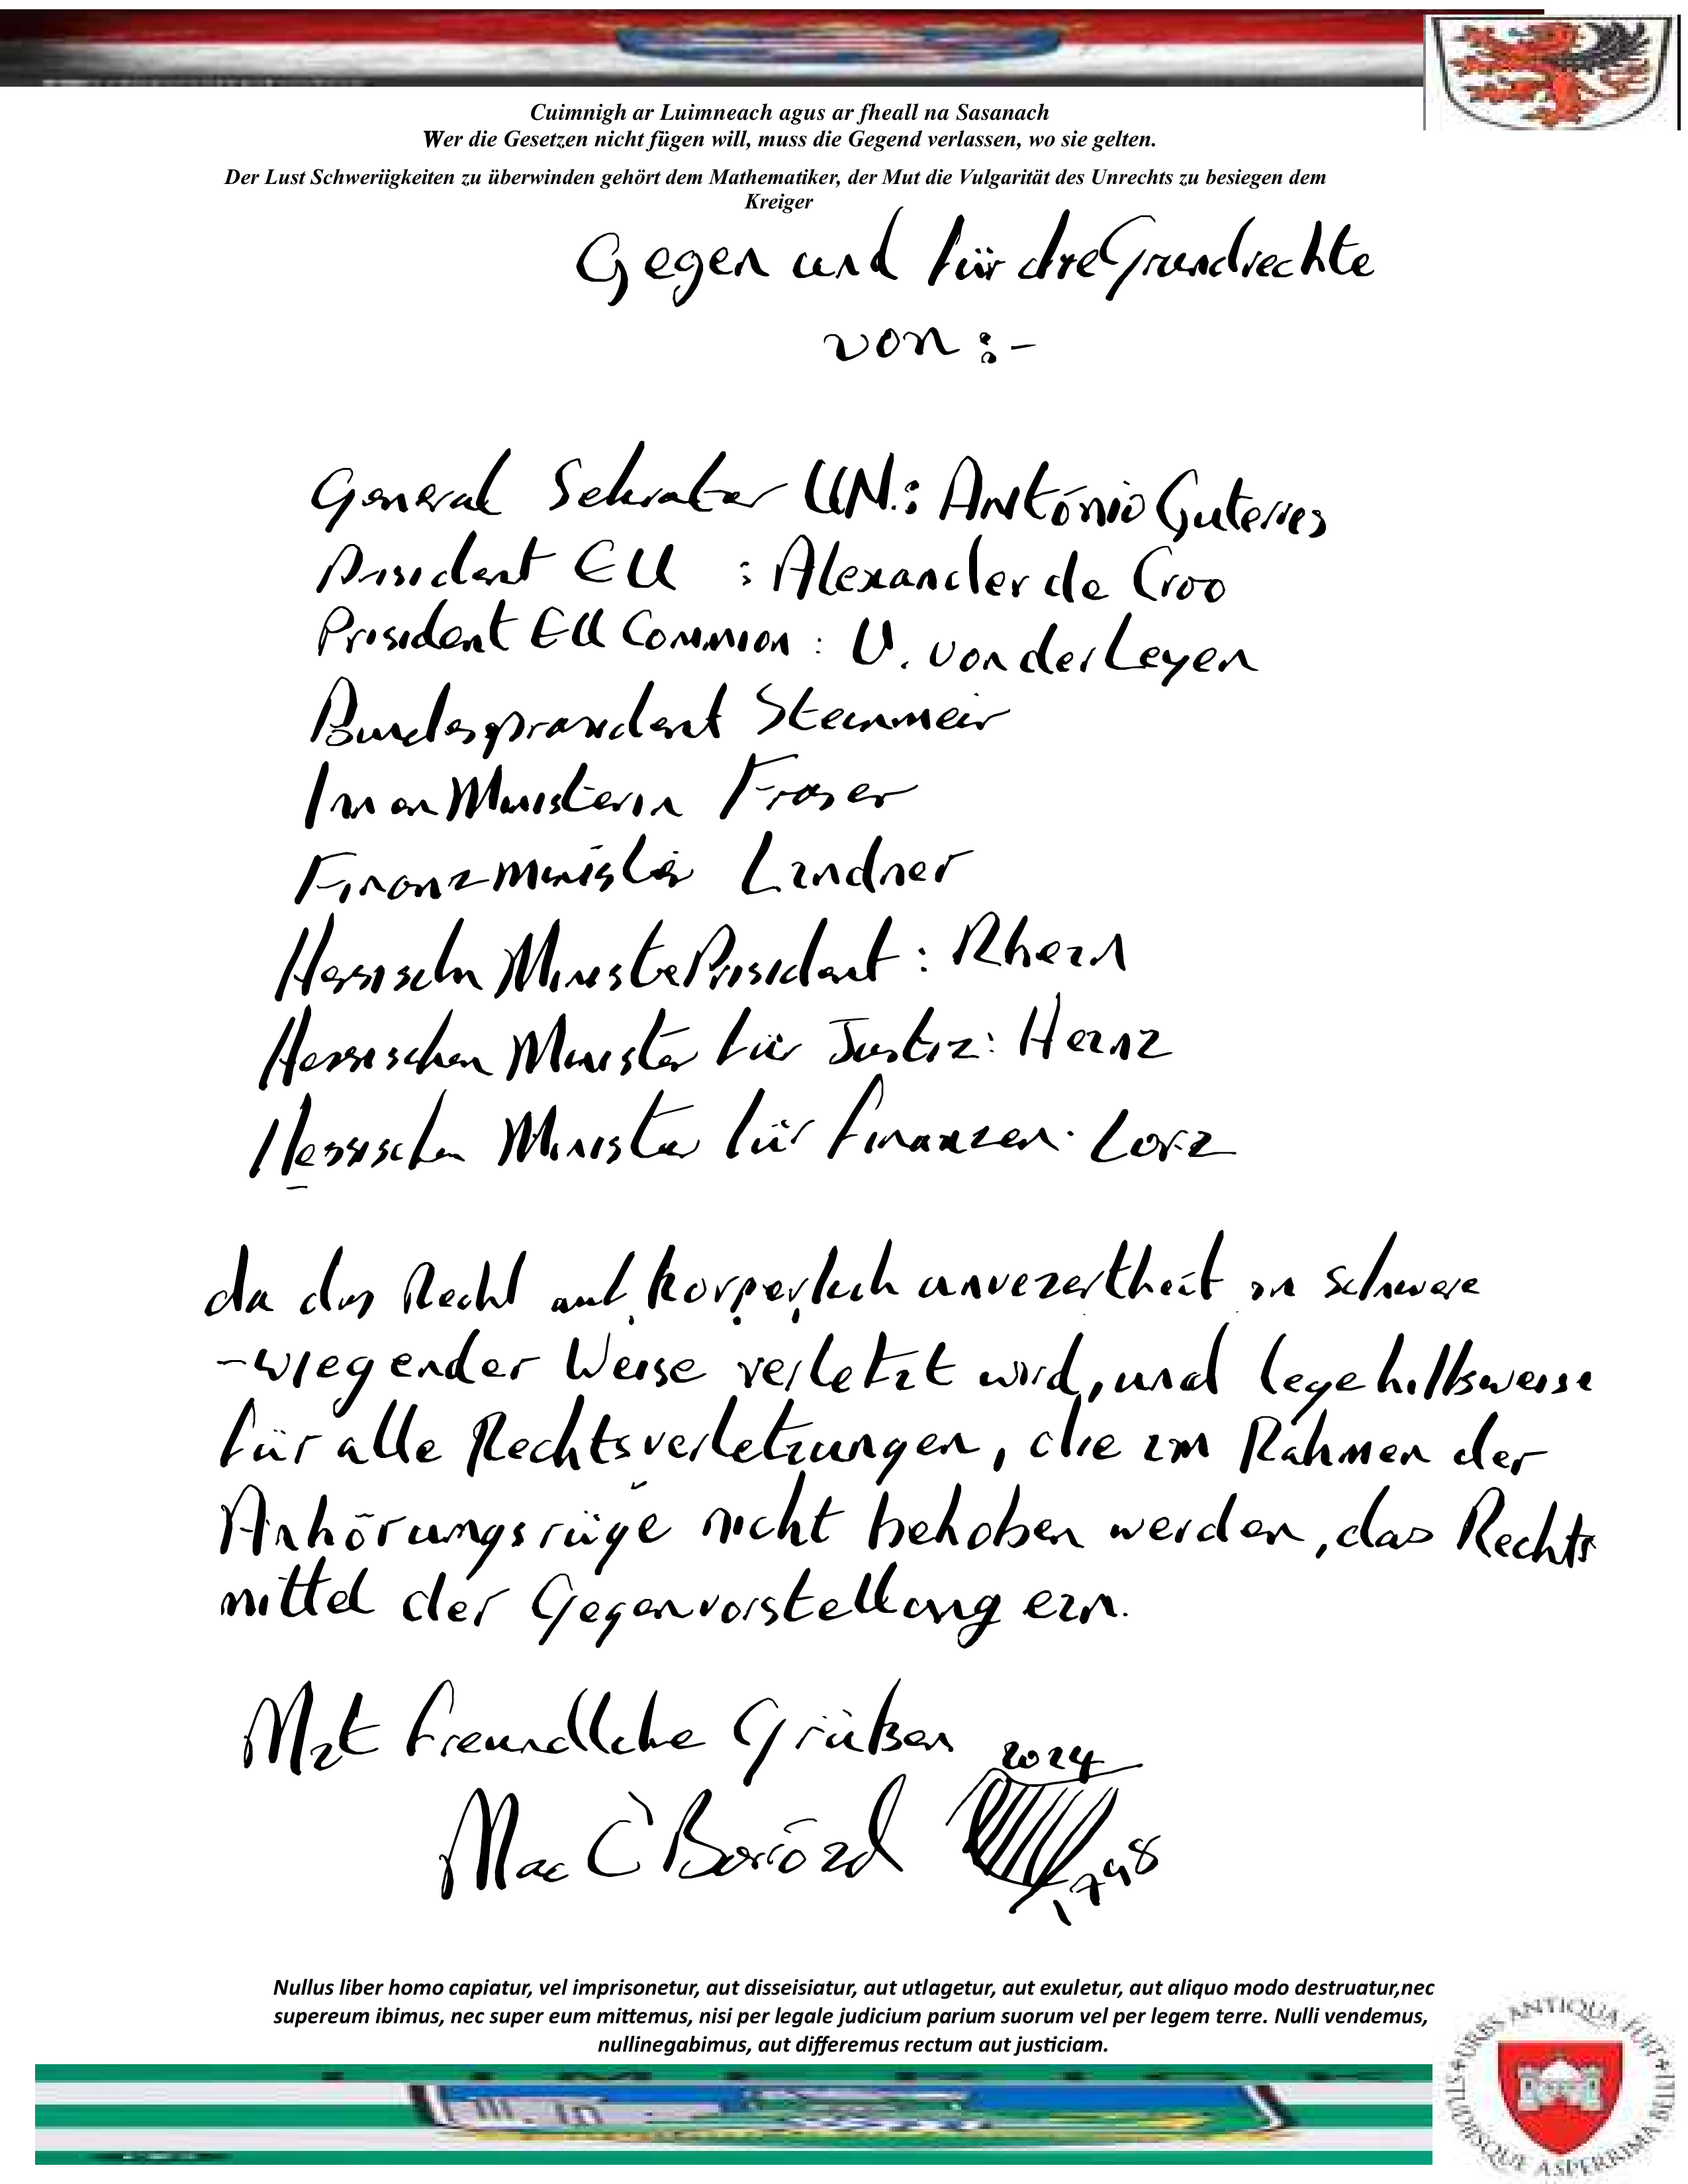 Cuimnigh ar Luimneach agus ar fheall na Sasanach
Wer die Gesetzen nicht fügen will, muss die Gegend verlassen, wo sie gelten.
Der Lust Schweriigkeiten zu überwinden gehört dem Mathematiker, der Mut die Vulgarität des Unrechts zu besiegen dem
Kreiger
Gegen und für die Grundrechte
von :-
General Sekratar UN.: António Guterres
Prasident EU : Alexander de Croo
Prasident EU Common : U. von der Leyen
Bundesprasident Steinmeir
Innen Ministerin Fraser
Finanzminister Lindner
Hessischen MinistePrasident : Rhein
Hessischen Minister für Justiz: Heinz
Hessischen Minister für Finanzen. Lorz
da das Recht auf korperlich unvezertheit in schwere
-wiegender Weise verletzt wird, und lege hilfsweise
für alle Rechtsverletzungen, die im Rahmen der
Anhörungsrüge nicht behoben werden, das Rechts
mittel der Gegenvorstellung ein.
Mit freundliche Grüßen
2024
Mac C
1798
Nullus liber homo capiatur, vel imprisonetur, aut disseisiatur, aut utlagetur, aut exuletur, aut aliquo modo destruatur,nec
supereum ibimus, nec super eum mittemus, nisi per legale judicium parium suorum vel per legem terre. Nulli vendemus,
nullinegabimus, aut differemus rectum aut justiciam.
URBS ANTIQUA FUIT STUDIISQUE ASPERRIMA BELLI